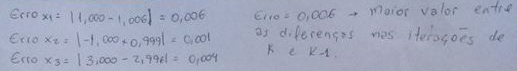 Erro x₁ = |1,000 - 1,006| = 0,006
Erro x₂ = |-1,000 + 0,999| = 0,001
Erro x₃ = |3,000 - 2,996| = 0,004
Erro = 0,006 → maior valor entre
as diferenças nas iterações de
K e K-1.